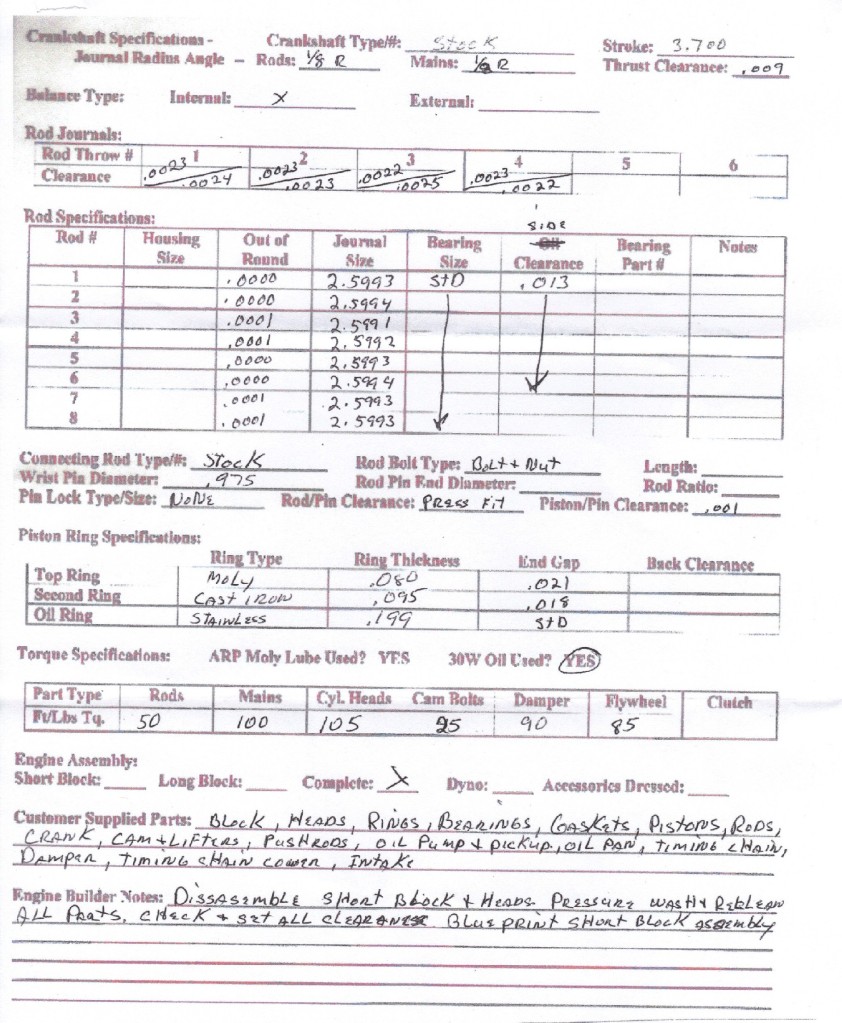 Crankshaft Specifications - Crankshaft Type/#: Stock Stroke: 3.700
Journal Radius Angle - Rods: 1/8 R Mains: 1/8 R Thrust Clearance: .009
Balance Type: Internal: X External:
Rod Journals:
Rod Throw # 1 2 3 4 5 6
Clearance .0023/.0024 .0023/.0023 .0022/.0025 .0023/.0022
Rod Specifications:
SIDE
Rod # Housing Size Out of Round Journal Size Bearing Size Oil Clearance Bearing Part # Notes
1 .0000 2.5993 STD .013
2 .0000 2.5994
3 .0001 2.5991
4 .0001 2.5992
5 .0000 2.5993
6 .0000 2.5994
7 .0001 2.5993
8 .0001 2.5993
Connecting Rod Type/#: Stock Rod Bolt Type: Bolt + Nut Length:
Wrist Pin Diameter: .975 Rod Pin End Diameter: Rod Ratio:
Pin Lock Type/Size: NONE Rod/Pin Clearance: PRESS FIT Piston/Pin Clearance: .001
Piston Ring Specifications:
Ring Type Ring Thickness End Gap Back Clearance
Top Ring MOLY .080 .021
Second Ring CAST IRON .095 .018
Oil Ring STAINLESS .199 STD
Torque Specifications: ARP Moly Lube Used? YES 30W Oil Used? YES
Part Type Rods Mains Cyl. Heads Cam Bolts Damper Flywheel Clutch
Ft/Lbs Tq. 50 100 105 25 90 85
Engine Assembly:
Short Block: Long Block: Complete: X Dyno: Accessories Dressed:
Customer Supplied Parts: BLOCK, HEADS, RINGS, BEARINGS, GASKETS, PISTONS, RODS,
CRANK, CAM + LIFTERS, PUSHRODS, OIL PUMP + PICKUP, OIL PAN, TIMING CHAIN,
DAMPER, TIMING CHAIN COVER, INTAKE
Engine Builder Notes: DISSASEMBLE SHORT BLOCK + HEADS PRESSURE WASH + RECLEAN
ALL PARTS, CHECK + SET ALL CLEARANCE BLUEPRINT SHORT BLOCK assembly